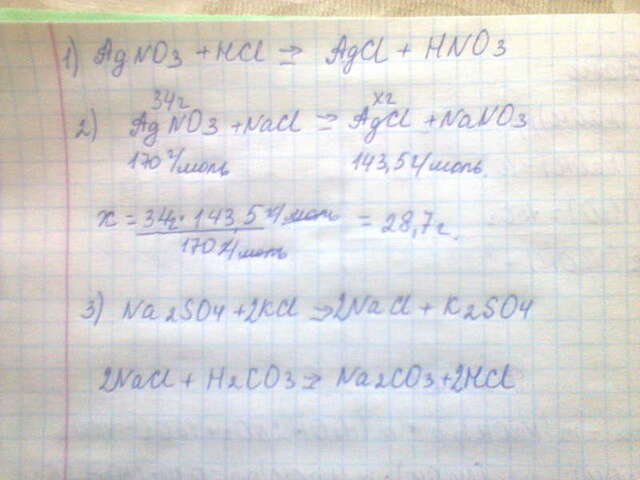 1) AgNO3 + HCl = AgCl + HNO3
34г хг
2) AgNO3 + NaCl = AgCl + NaNO3
170 г/моль 143,5 г/моль
х = 34г · 143,5 г/моль = 28,7 г.
170 г/моль
3) Na2SO4 + 2KCl = 2NaCl + K2SO4
2NaCl + H2CO3 = Na2CO3 + 2HCl